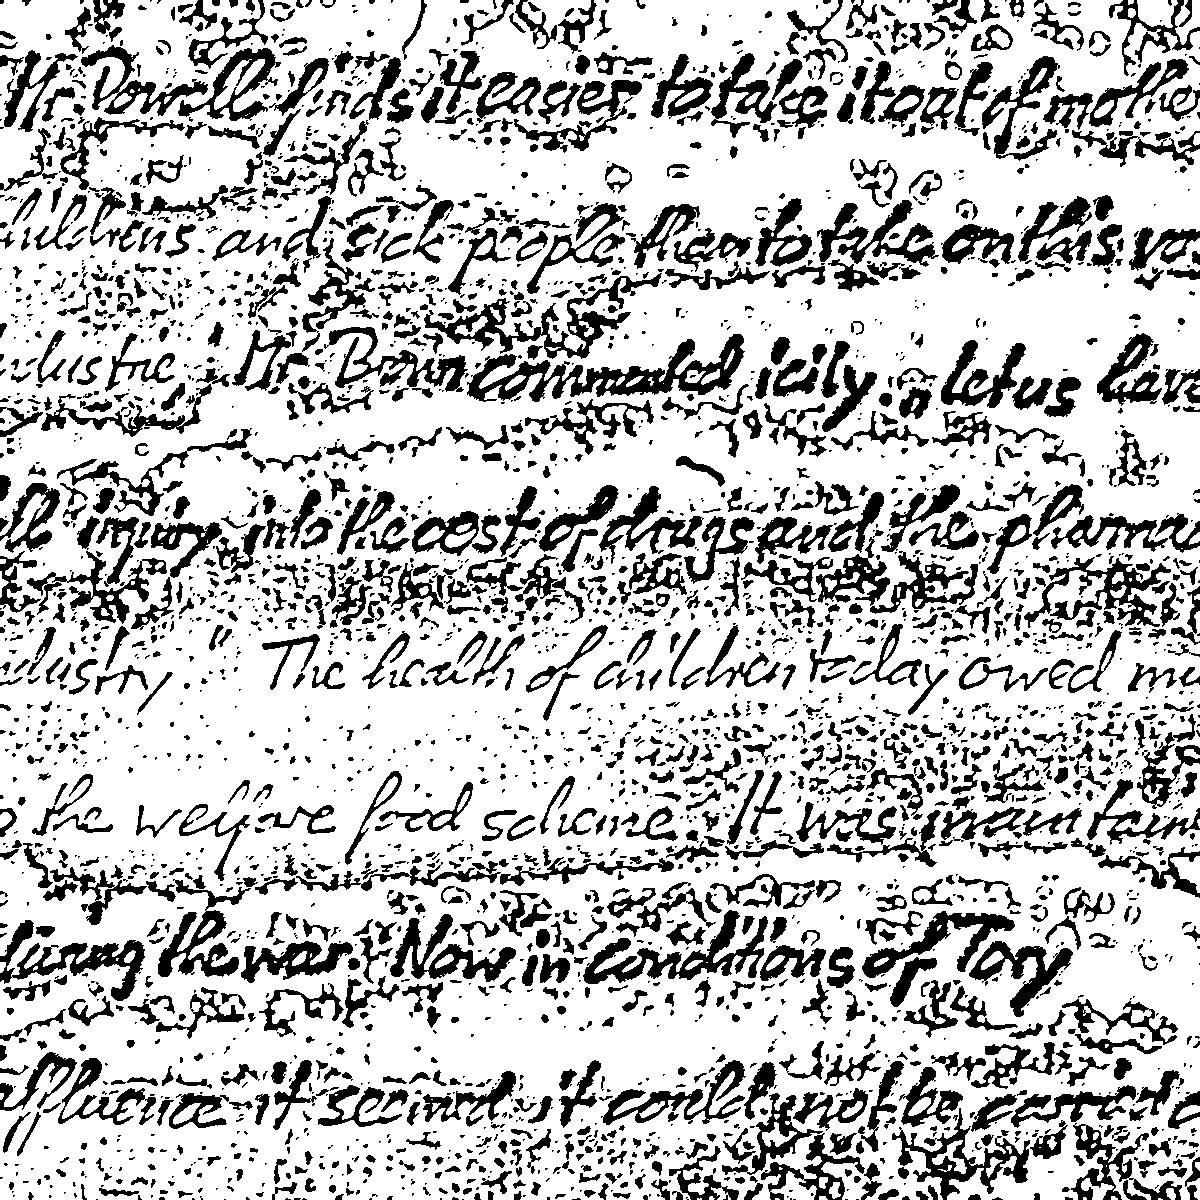 Mr Powell finds it easier to take it out of mother
childrens and sick people than to take on this vas
industrie". Mr Brown commented icily. "Let us have
all inquiry into the cost of drugs and the pharmac
industry." The health of children today owed mu
to the welfare food scheme. It was maintain
during the war. Now in conditions of Tory
affluence it seemed it could not be carried o